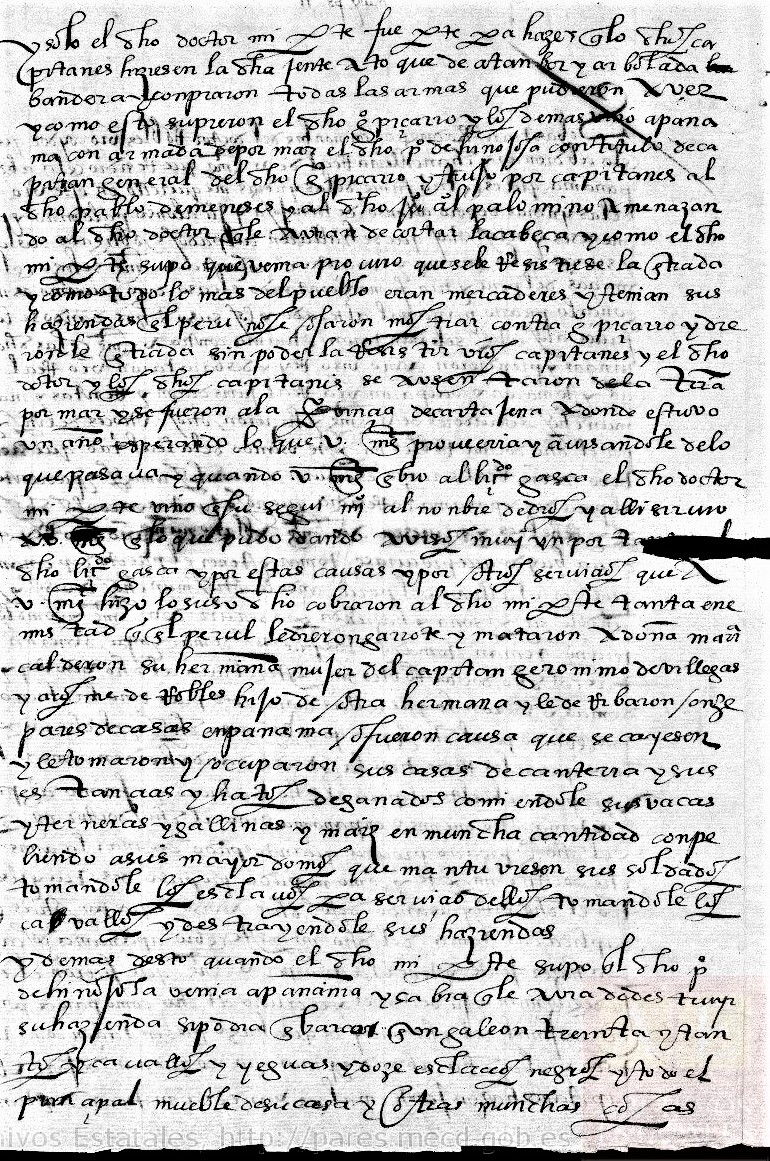 y solo el dho doctor mi pte fue pte pa hazer q los dhos ca
pitanes hiziesen la dha jente a to que de atanbor y arbolada
bandera y conpraron todas las armas que pudieron a ver
y como esto supieron el dho gº piçarro y los demas vino a pana
ma con armada de por mar el dho pº de hinojosa con titulo de ca
pitan general del dho gº piçarro y truxo por capitanes al
dho pablo de meneses y al dho juº al palomino amenazan
do al dho doctor q le avian de cortar la cabeça y como el dho
mi pte supo que venia procuro que se le Resistiese la entrada
y como todo lo mas del pueblo eran mercaderes y tenian sus
haziendas en el peru no se osaron mostrar contra gº piçarro y die
ronle entrada sin poderla Resistir vros capitanes y el dho
dotor y los dhos capitanes se ausentaron de la trra
por mar y se fueron a la provinçia de cartajena a donde estuvo
un año esperando lo que v. mag proveeria y avisandole de lo
que pasava y quando v. mag enbio al licdo gasca el dho doctor
mi pte vino en su segui mi al nonbre de dios y alli sirvio
a v. mag en lo que pudo dando avisos muy ynportantes
dho licdo gasca y por estas causas y por otros serviçios que a
v. mag hizo los uso dho cobraron al dho mi pte tanta ene
mistad q en el peru le dieron garrote y mataron a doña maria
calderon su hermana mujer del capitan geronimo de villegas
y a tome de Robles hijo de otra hermana y le deRibaron onze
pares de casas en panama o fueron causa que se cayesen
y le tomaron y ocuparon sus casas de canteria y sus
estançias y hatos de ganados comiendole sus vacas
y terneras y gallinas y maiz en muncha cantidad conpe
liendo a sus mayordomos que mantuviesen sus soldados
tomandole los esclavos pa serviçio dellos tomandole los
cavallos y destruyendole sus haziendas
y demas desto quando el dho mi pte supo q el dho pº
de hinojosa venia a panama y sabia q le avia de destruyr
su hazienda si podia enbarco en un galeon treinta y tan
tos cavallos y yeguas y doze esclavos negros y todo el
prinçipal mueble de su casa y otras munchas cosas
Archivos Estatales, http://pares.mecd.gob.es